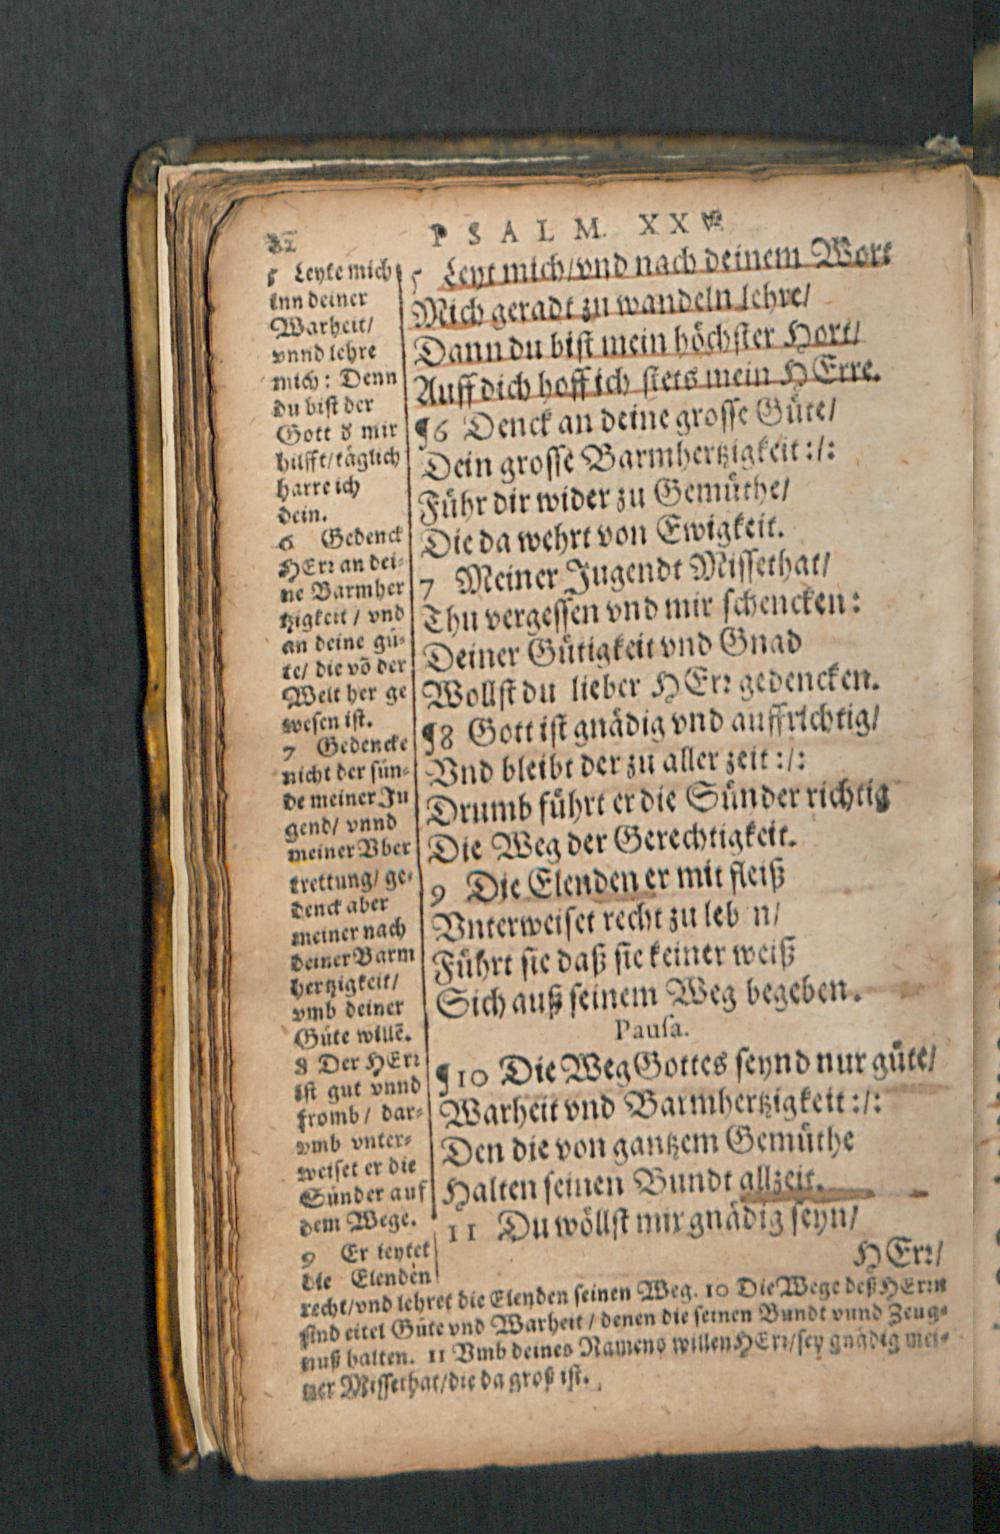 82
PSALM. XXV.
5 Leyte mich
inn deiner
Warheit/
vnnd lehre
mich: Denn
du bist der
Gott d' mir
hilfft/täglich
harre ich
dein.
6 Gedenck
HErr an dei-
ne Barmher
tzigkeit / vnd
an deine gü-
te/ die vō der
Welt her ge
wesen ist.
7 Gedencke
nicht der sün-
de meiner Ju
gend/ vnnd
meiner Vber
trettung/ ge-
denck aber
meiner nach
deiner Barm
hertzigkeit/
vmb deiner
Güte willē.
8 Der HErr
ist gut vnnd
fromb / dar-
vmb vnter-
weiset er die
Sünder auf
dem Wege.
9 Er leytet
die Elenden
recht/vnd lehret die Elenden seinen Weg. 10 Die Wege deß HErrn
sind eitel Güte vnd Warheit / denen die seinen Bundt vnnd Zeug-
nuß halten. 11 Vmb deines Namens willen HErr/sey gnädig mei-
ner Missethat/die da groß ist.
5 Leyt mich/vnd nach deinem Wort
Mich geradt zu wandeln lehre/
Dann du bist mein höchster Hort/
Auff dich hoff ich stets mein HErre.
¶6 Denck an deine grosse Güte/
Dein grosse Barmhertzigkeit :/:
Führ dir wider zu Gemüthe/
Die da wehrt von Ewigkeit.
7 Meiner Jugendt Missethat/
Thu vergessen vnd mir schencken:
Deiner Gütigkeit vnd Gnad
Wollst du lieber HErr gedencken.
¶8 Gott ist gnädig vnd auffrichtig/
Vnd bleibt der zu aller zeit :/:
Drumb führt er die Sünder richtig
Die Weg der Gerechtigkeit.
9 Die Elenden er mit fleiß
Vnterweiset recht zu leb n/
Führt sie daß sie keiner weiß
Sich auß seinem Weg begeben.
Pausa.
¶10 Die Weg Gottes seynd nur güte/
Warheit vnd Barmhertzigkeit :/:
Den die von gantzem Gemüthe
Halten seinen Bundt allzeit.
11 Du wöllst mir gnädig seyn/
HErr/